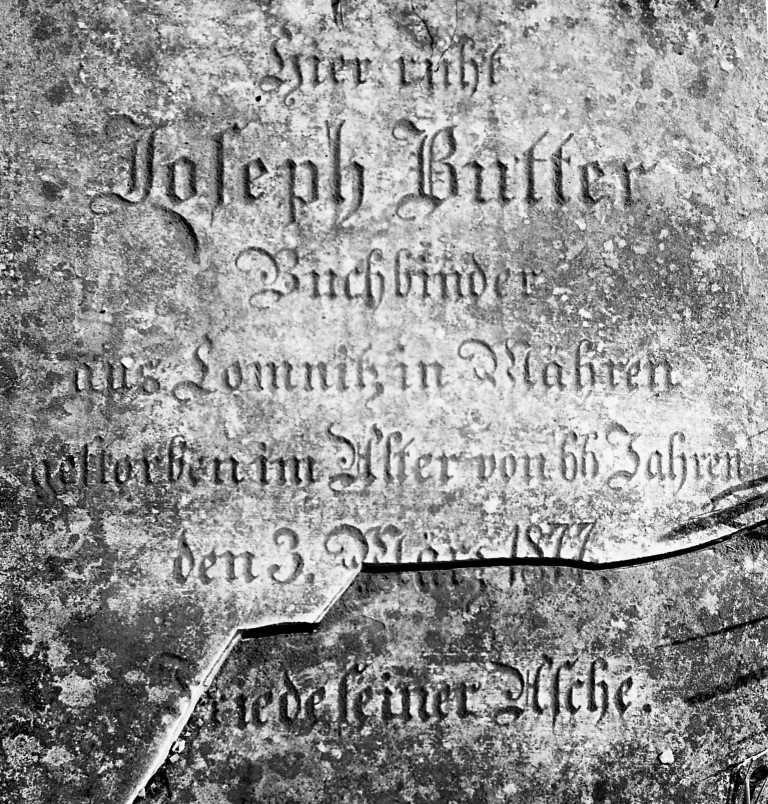 Hier ruht
Joseph Butter
Buchbinder
aus Lomnitz in Mähren
gestorben im Alter von 66 Jahren
den 3. März 1877.
Friede seiner Asche.